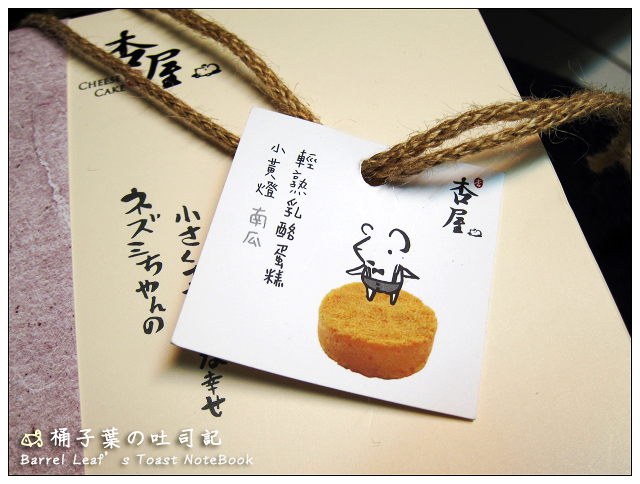 杏屋
CHEESE
CAKE
小さく
な幸せ
ネズミちゃんの
杏屋
輕熟乳酪蛋糕
小黃燈 南瓜
桶子葉の吐司記
Barrel Leaf's Toast NoteBook